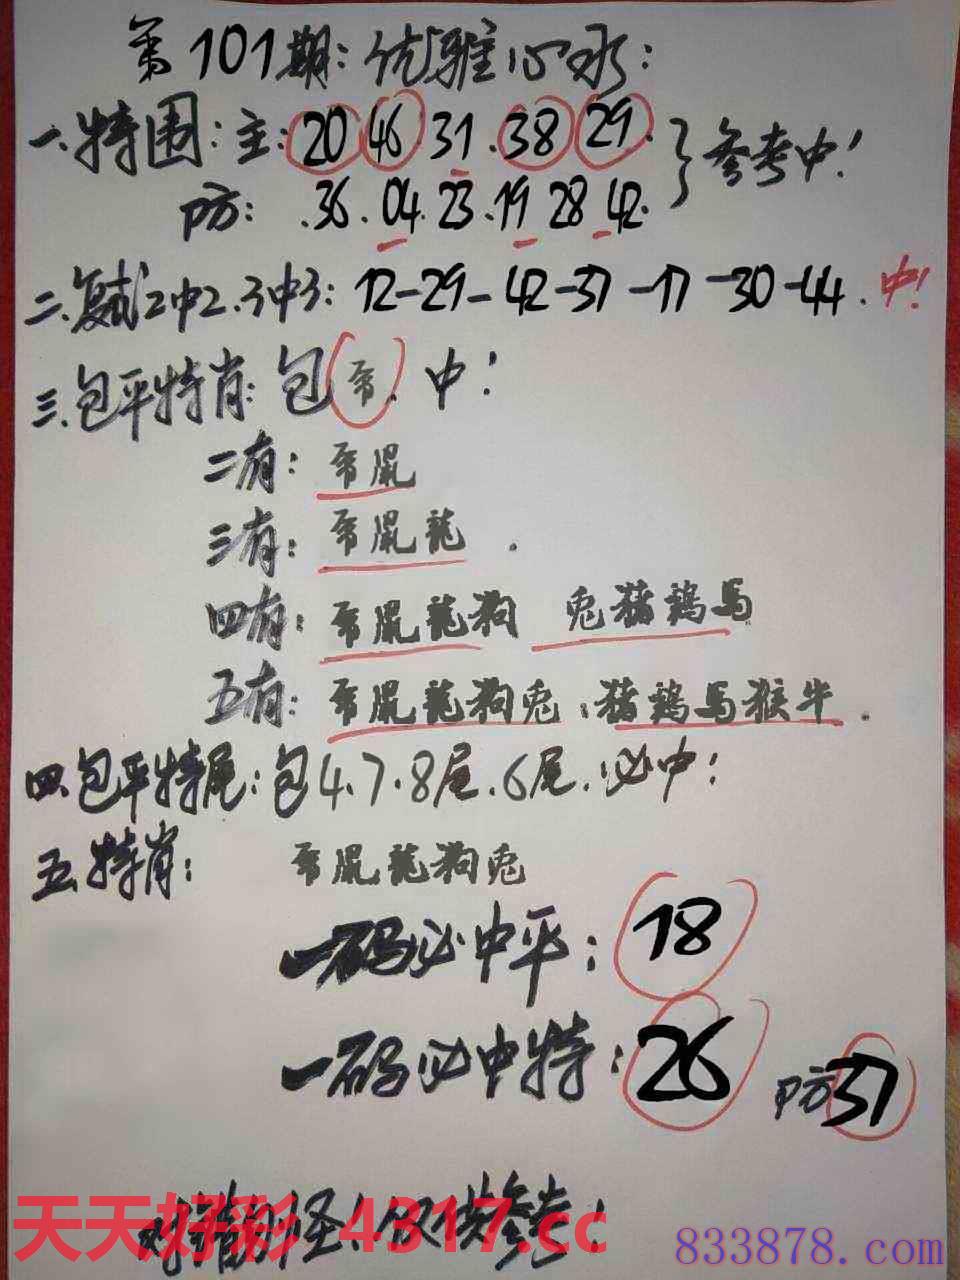 第101期:优雅心水:
一.特围:主:20 46 31.38 29. }参考中!
防:.36.04.23.19 28 42.
二.复试2中2.3中3:12-29-42-37-17-30-44.中!
三.包平特肖:包.中!
二有:鼠
三有:鼠龍.
四有:鼠龍狗 兔豬鷄馬
五有:鼠龍狗兔:豬鷄馬猴牛.
四.包平特尾:包4.7.8尾.6尾.必中:
五.特肖:鼠龍狗兔
一码必中平:18
一码必中特:26 防37
对错勿怪!仅供参考!
天天好彩 4317.cc
833878.com